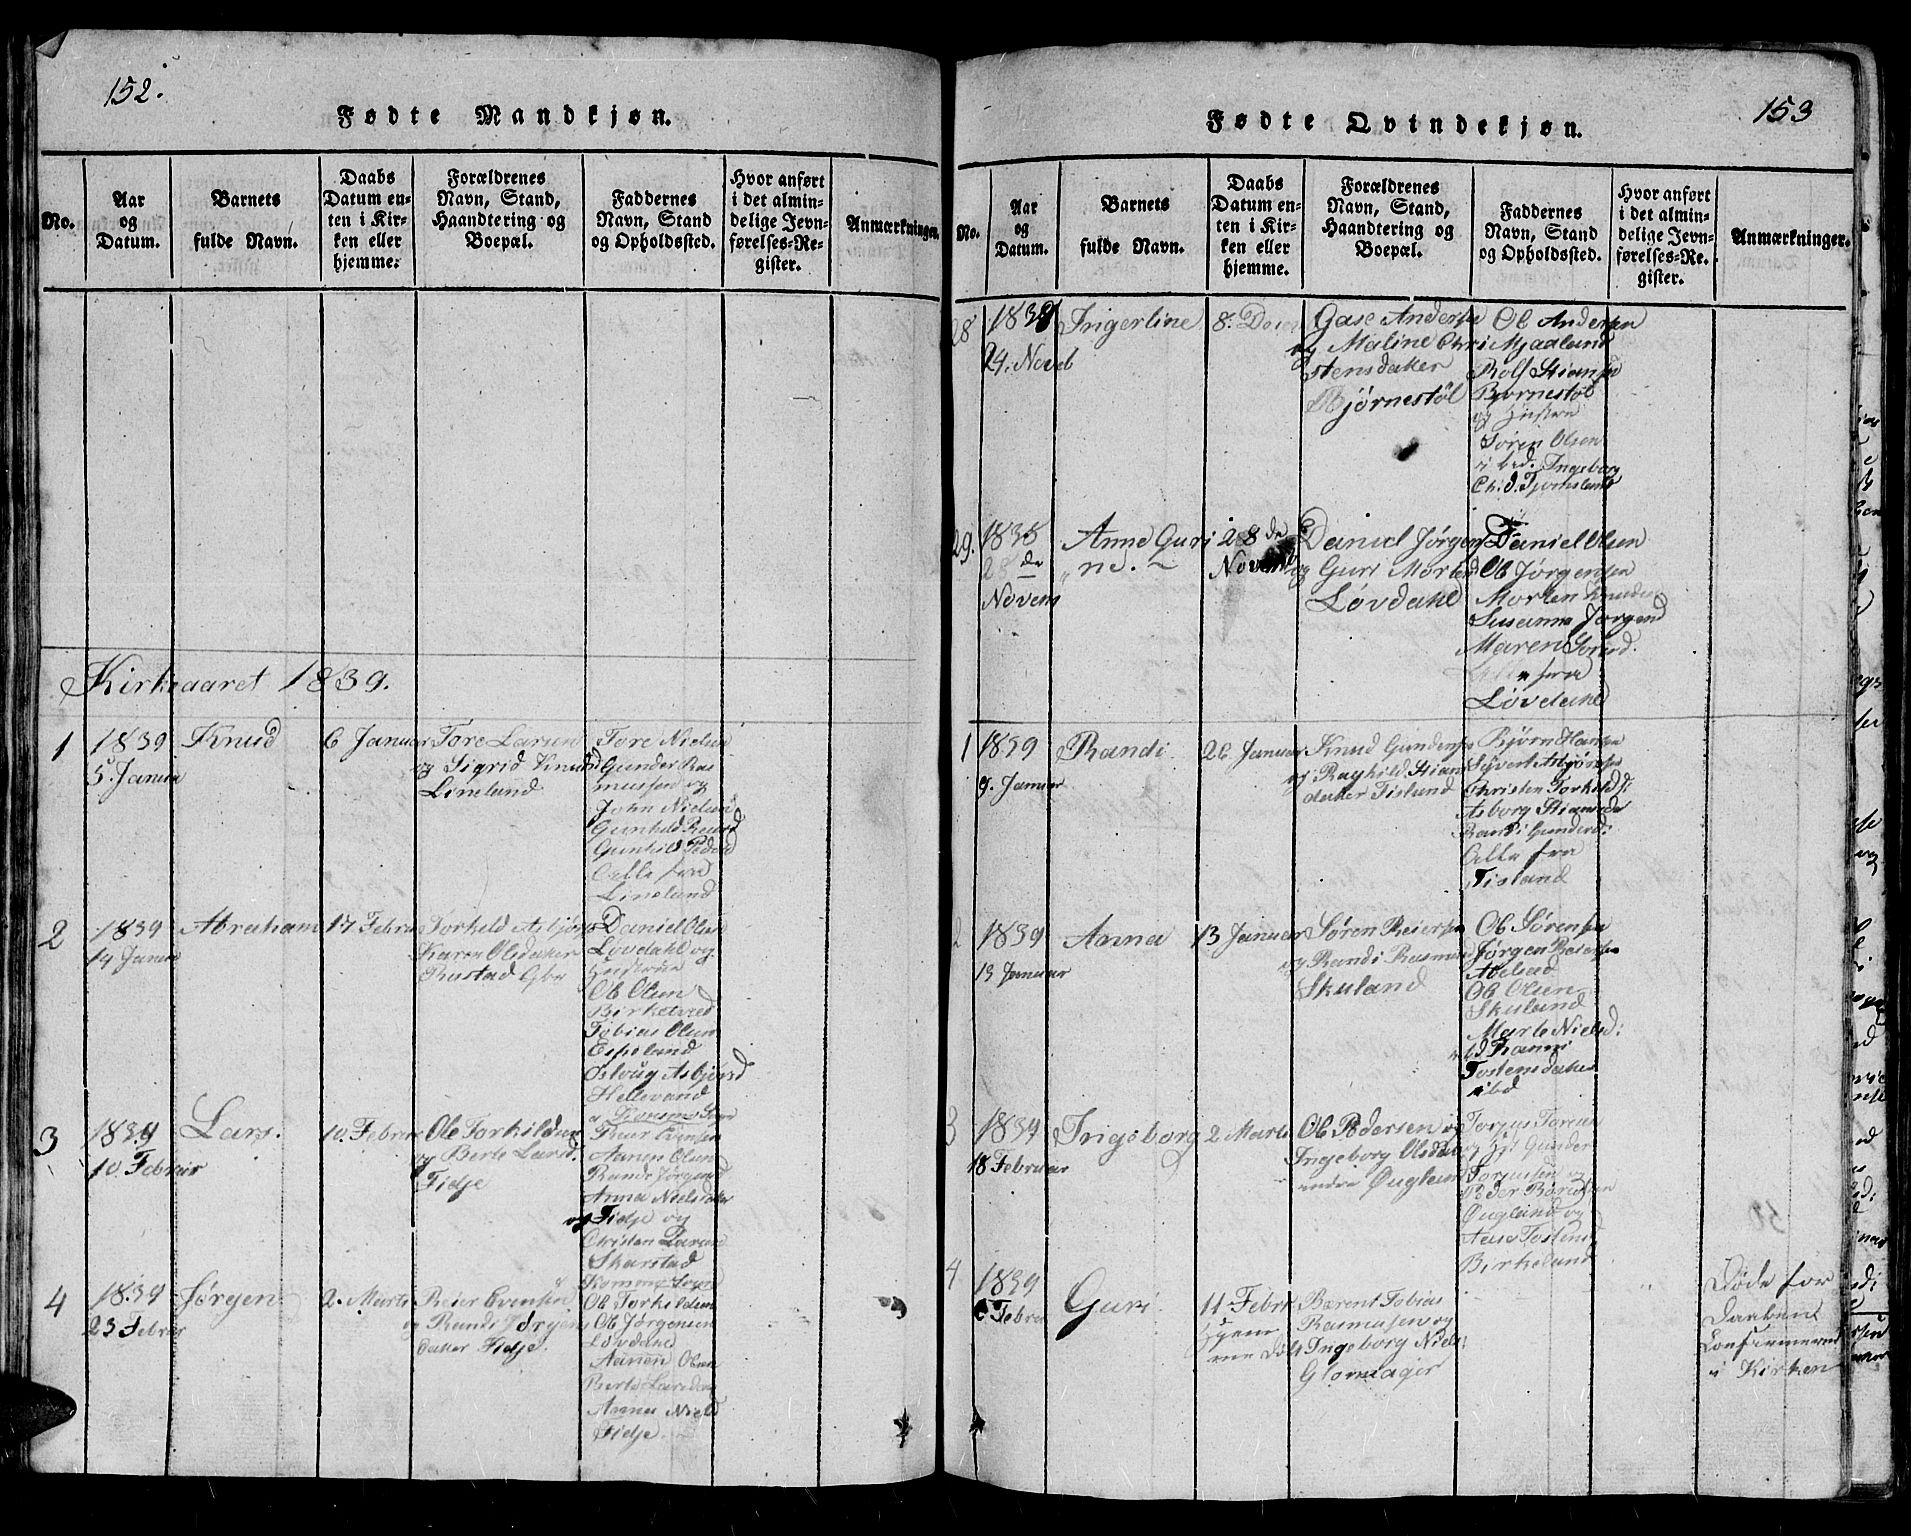 152.
Fødte Mandkjøn.
No.
Aar
og
Datum.
Barnets
fulde Navn.
Daabs
Datum en-
ten i Kir-
ken eller
hjemme.
Forældrenes
Navn, Stand,
Haandtering og
Boepæl.
Faddernes
Navn, Stand
og Opholdssted.
Hvor anført
i det almin-
delige Jevn-
førelses-Re-
gister.
Anmærkninger.
Kirkeaaret 1839.
1
1839
5. Januar
Knud
6 Januar
Tore Larsen
og Sigrid Knudsd
Lineland
Tore Nielsen
Gunder Ras
mussen og
John Nielsen
Gunhild
Gunhild Pedersd
Alle fra
Lineland
2
1839
14 Januar
Abraham
17 Februar
Torkild Asbjørns
Karen Olsdatter
Rustad
Daniel Olsen
Løvdahl og
Ole Olsen
Birketved
Tobias Olsen
Espeland
Oslaug Asbjørnsd
Hellevand
3
1839
10 Februar
Lars.
10. Februar
Ole Torkildsen
og Berte Larsd.
Fidje
Thur Evensen
Aanen Olsen
Randi Jørgensd
Anna Nielsdatter
og Fidje og
Christen Larsen
Skarstad
4
1839
23 Februar
Jørgen
2. Marts
Reier Evensen
og Randi Jørgens
datter Fidje.
Ole Torkildsen
Ole Jørgensen
Løvdahl
Aanen Olsen
Berte Larsda
Anna Nielsd
Fidje.
153
Fødte Qvindekjøn.
No.
Aar
og
Datum.
Barnets
fulde Navn.
Daabs
Datum en-
ten i Kir-
ken eller
hjemme.
Forældrenes
Navn, Stand,
Haandtering og
Boepæl.
Faddernes
Navn, Stand
og Opholdssted.
Hvor anført
i det almin-
delige Jevn-
førelses-Re-
gister.
Anmærkninger.
28
1838
24. Noveb
Ingerline
8.
Gase Anderse
og Maline Chri
stensdatter
Bjørnestøl
Ole Andersen
Mjaaland
Rolf Stianse
Bjørnestøl
og Hustru
Søren Olsen
ibd. Ingeborg
Ch. d. Tjomsland
29.
1838
28 de
Novem
Anne Guri
ne.
28 de
Novemb
Daniel Jørgens
og Guri Mortensd
Løvdahl
Daniel Olsen
Ole Jørgensen
Morten Knudsen
Susanne Jørgensd
Maren
Alle fra
Løvdahl
1
1839
9. Januar
Randi
26 Januar
Knud Gunderse
og Raghild Stians
datter Tisland
Bjørn Hanse
Syvert Asbjørnse
Christen Torkildsd:
Asborg Stiansda
Randi Gundersd:
Alle fra
Tisland
2
1839
13 Januar
Anna
13 Januar
Søren Reierse
og Randi Rasmusd
Skuland
Ole Sørense
Jørgen Reierse
Ole Olsen
Skuland
Marte Nielsd:
ibd Rannei
Tostensdatter
ibd
3
1839
18 Februar
Ingeborg
2 Marts
Ole Pedersen og
Ingeborg Olsdat
Øugland
Torjus Torsen
og Hst Gunder
Torjussen og
Peder Børesen
Øugland og
Aase Tostensd
Birkeland
4
1839
6 Februar
Guri
11 Febr
Hjeme
Bærent Tobias
Rasmusen og
Ingeborg Niels:
Glomsager
Døde før
Daaben
Confirmeret
i Kirken